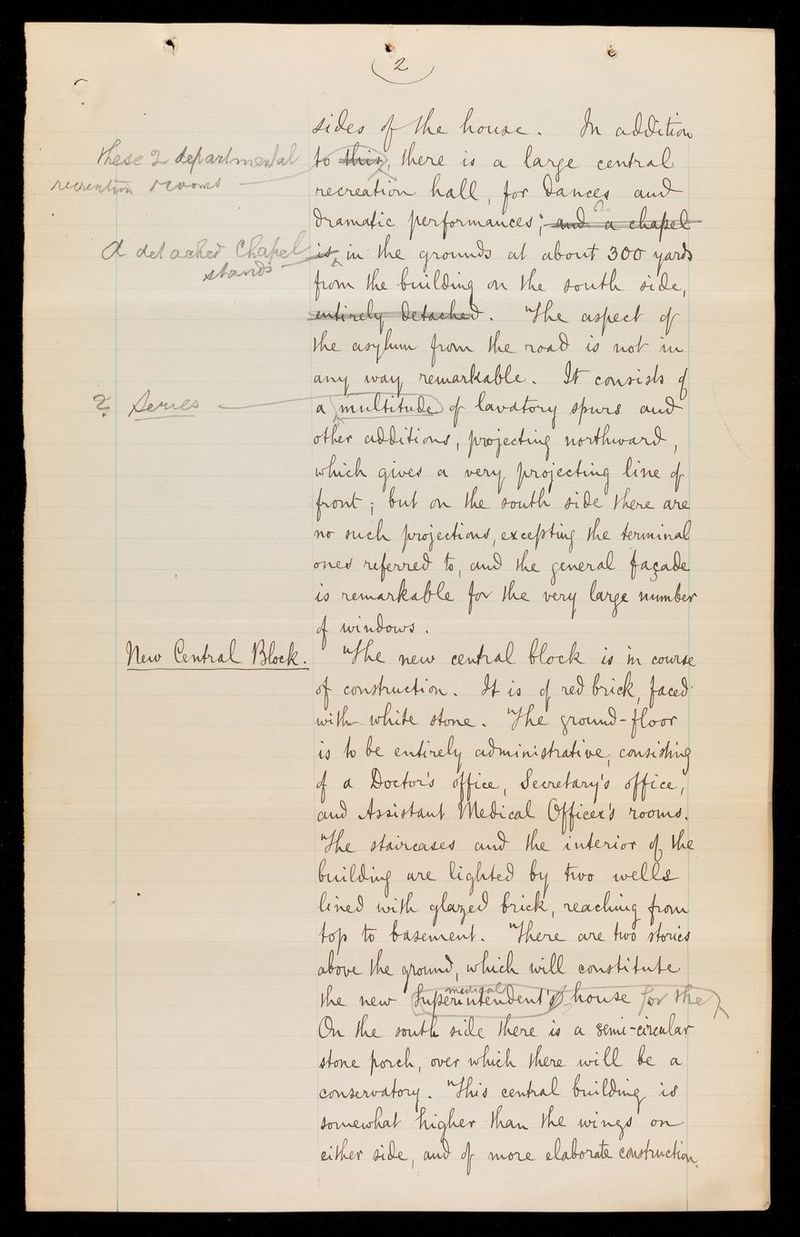 2
sides of the house. In addition
these 2 departmental
to this, there is a large central
recreation rooms
recreation hall, for dances and
dramatic performances; and a chapel
A detached Chapel
stands
is, in the grounds at about 300 yards
from the building on the south side,
entirely detached. The aspect of
the asylum from the road is not in
any way remarkable. It consists of
? Series
a multitude of lavatory spurs and
other additions, projecting northward,
which gives a very projecting line of
front; but on the south side there are
no such projections, excepting the terminal
ones referred to, and the general façade
is remarkable for the very large number
of windows.
New Central Block.
The new central block is in course
of construction. It is of red brick, faced
with white stone. The ground-floor
is to be entirely administrative, consisting
of a Doctor's office, Secretary's office,
and Assistant Medical Officer's rooms.
The staircases and the interior of the
building are lighted by two wells
lined with glazed brick, reaching from
top to basement. There are two stories
above the ground, which will constitute
medical
the new Superintendent's house for the
On the south side there is a semi-circular
stone porch, over which there will be a
conservatory. This central building is
somewhat higher than the wings on
either side, and of more elaborate construction